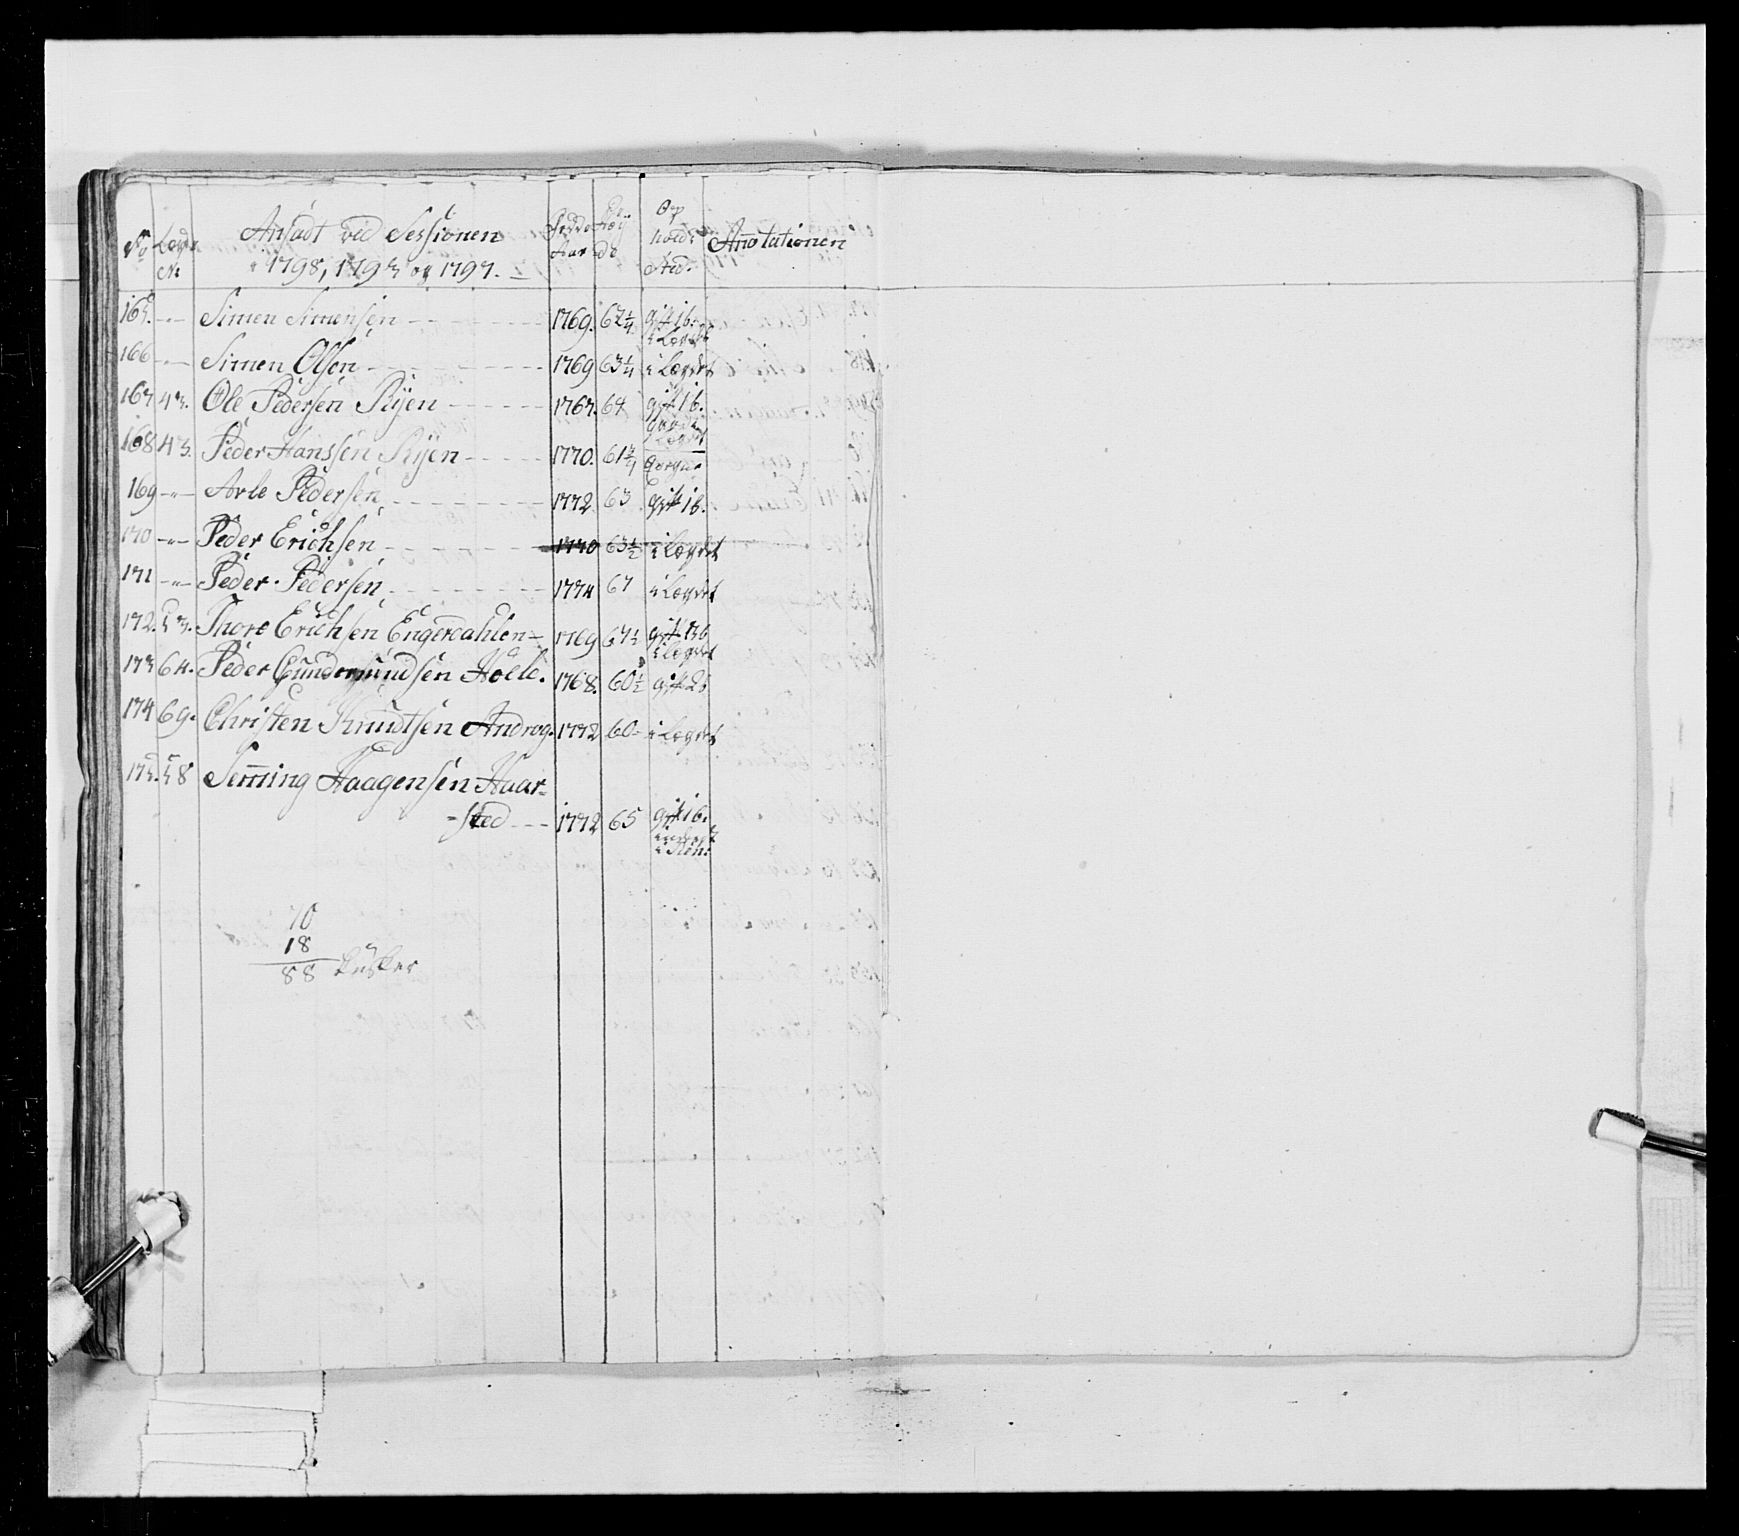 No Lægd No Ansadt ved Sessionen i 1798, 1795 og 1797. Fødde Aar Høyde Op holds Sted. Anotationer
165. -"- Simen Simensen 1769. 62 1/4 gift 1 b. i Lægdet
166 -"- Simen Olsen 1769 63 1/4 i Lægdet
167 43. Ole Pedersen Ryen 1767. 64 gift 1 b.
168 43. Peder Hanssen Ryen 1770. 61 3/4
169 -"- Arle Pedersen 1772 63 gift 1 b.
170 -"- Peder Erichsen 1770 63 1/2 i Lægdet
171 -"- Peder Pedersen 1774 67 i Lægdet
172. 53. Thore Erichsen Engerdahlen 1769 67 1/2 gift 3 b i Lægdet
173 64. Peder Gundersen Holle. 1768. 60 1/2 gift 2 b
174 69. Christen Knudtsen Androg. 1772 60 - i Lægdet
175. 58 Semming Haagensen Haar-
-sted 1772 65 gift 1 b.
70
18
88 Kusker